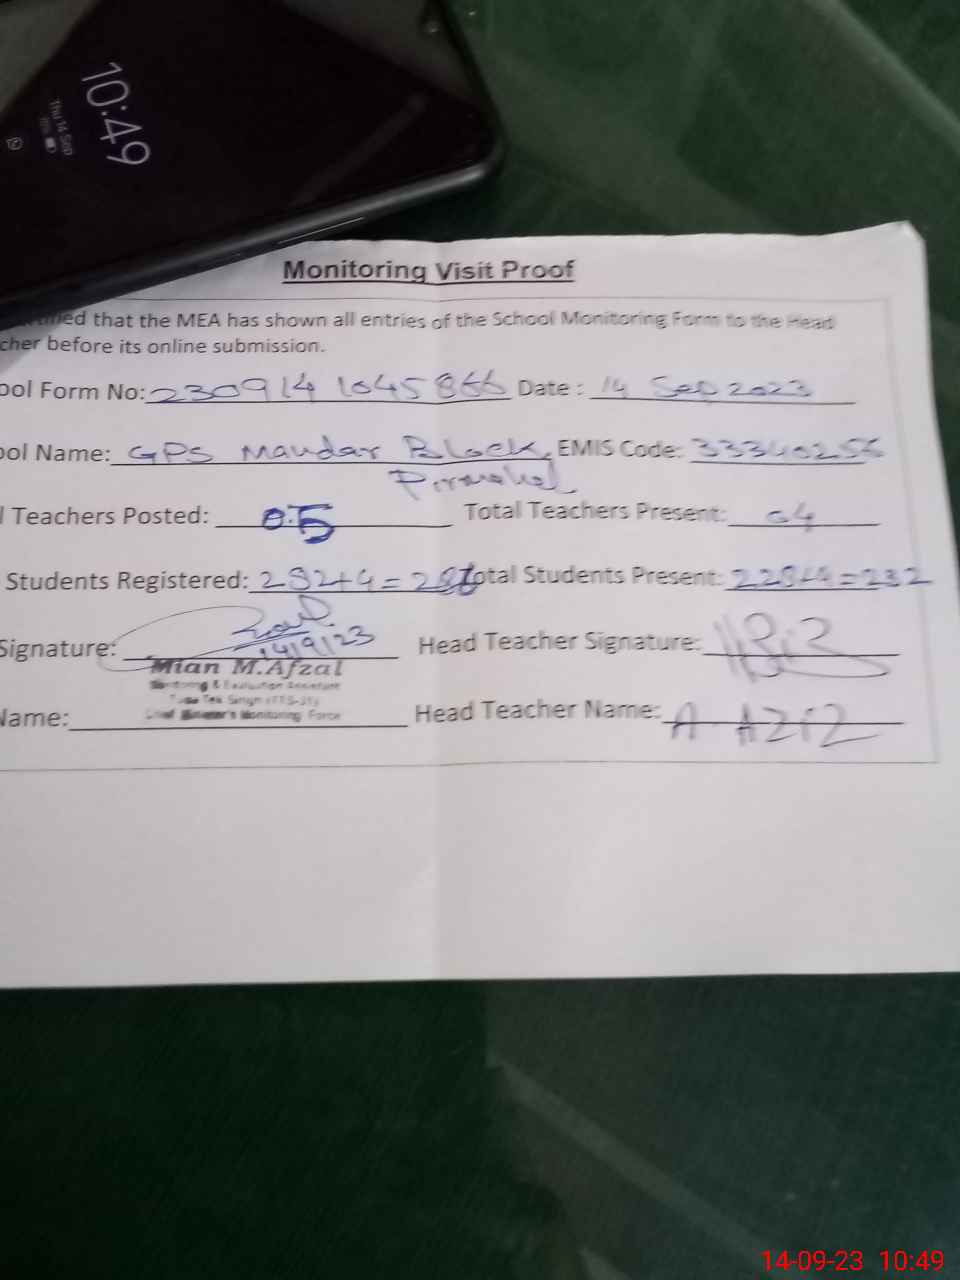 10:49
Thu 14 Sep
Monitoring Visit Proof
that the MEA has shown all entries of the School Monitoring Form to the Head
cher before its online submission.
ool Form No: 230914 1045866 Date : 14 Sep 2023
ool Name: GPS Mandar Block, EMIS Code: 33340256
Pirmahal
l Teachers Posted: 05 Total Teachers Present: 04
Students Registered: 282+4=286 otal Students Present: 228+4=232
Signature: 14/9/23 Head Teacher Signature:
Mian M.Afzal
Monitoring & Evaluation Assistant
Toba Tek Singh (TTS-31)
Chief Minister's Monitoring Force
Name: Head Teacher Name: A. Aziz
14-09-23 10:49